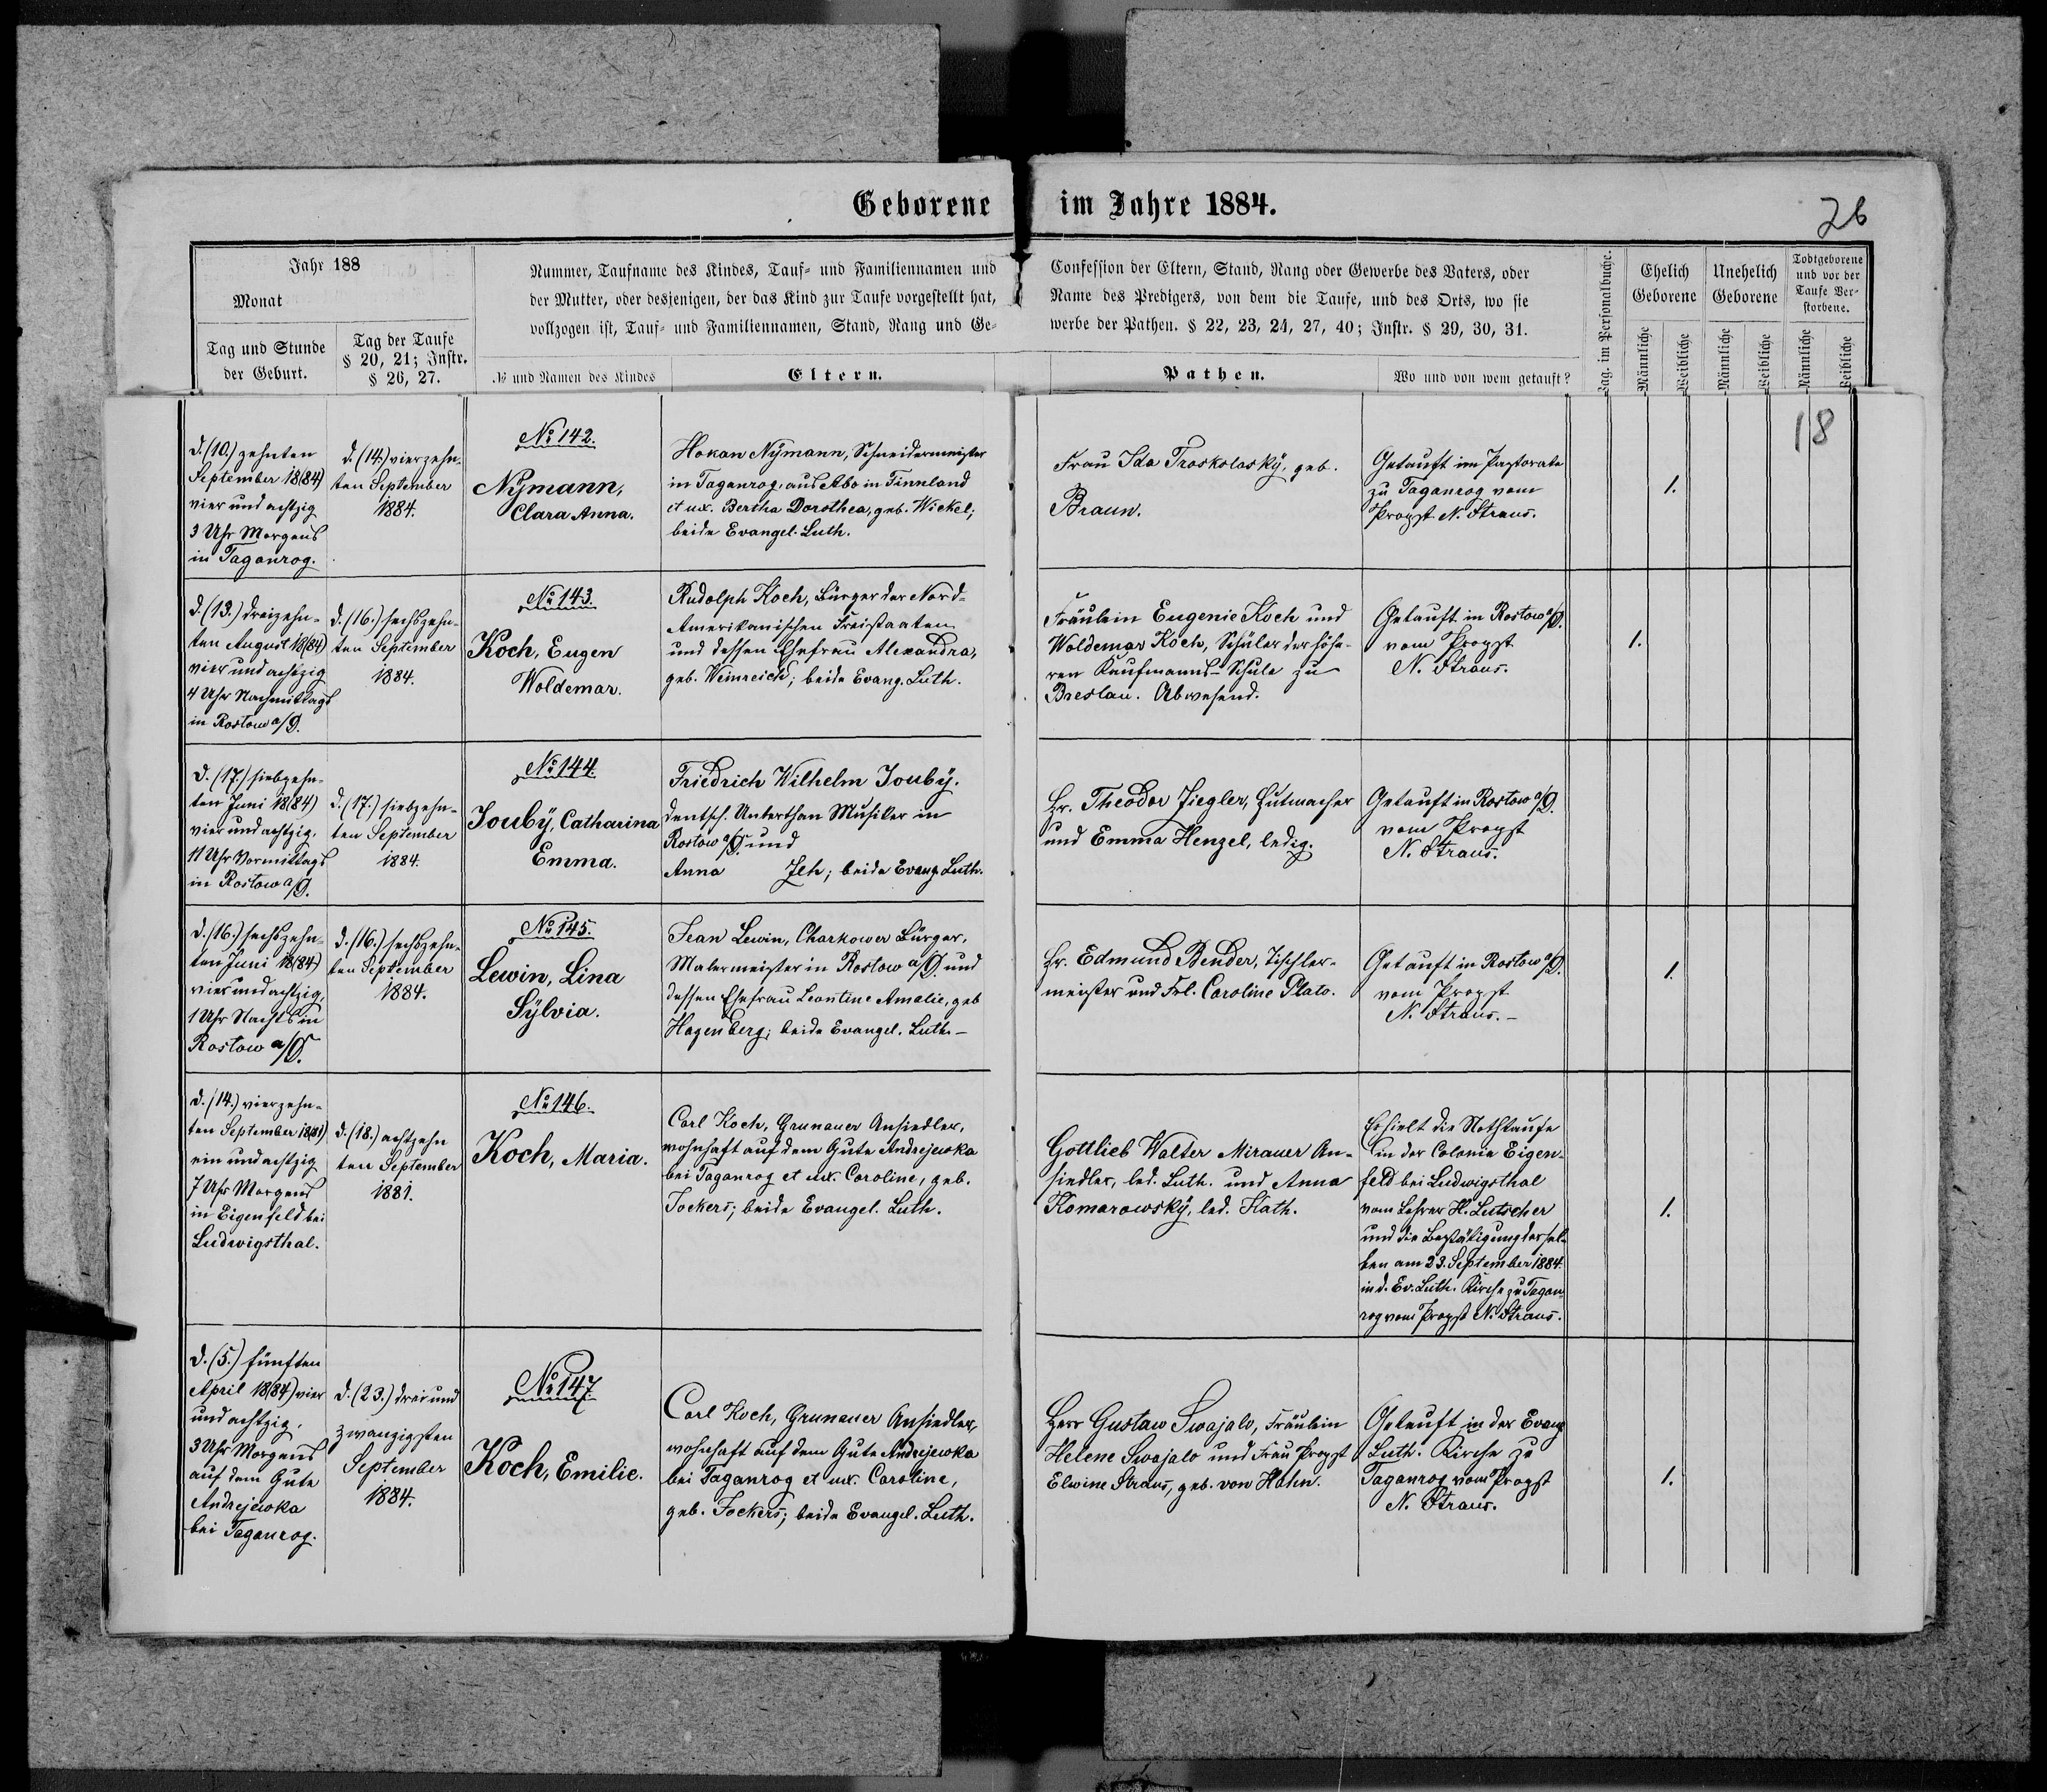 Geborene im Jahre 1884.
26
Jahr 188
Monat
Tag und Stunde
der Geburt.
Tag der Taufe
§ 20, 21; Instr.
§ 26, 27.
Nummer, Taufname des Kindes, Tauf- und Familiennamen und
der Mutter, oder desjenigen, der das Kind zur Taufe vorgestellt hat,
vollzogen ist, Tauf- und Familiennamen, Stand, Rang und Ge-
№ und Namen des Kindes
Eltern.
Confession der Eltern, Stand, Rang oder Gewerbe des Vaters, oder
Name des Predigers, von dem die Taufe, und des Orts, wo sie
werbe der Pathen. § 22, 23, 24, 27, 40; Instr. § 29, 30, 31.
Pathen.
Wo und von wem getauft?
Pag. im Personalbuche.
Ehelich
Geborene
Männliche
Weibliche
Unehelich
Geborene
Männliche
Weibliche
Todtgeborene
und vor der
Taufe Ver-
storbene.
Männliche
Weibliche
18
d. (10.) zehnten
September 18(84)
vier und achtzig
3 Uhr Morgens
in Taganrog.
d. (14.) vierzehn-
ten September
1884.
№ 142.
Nÿmann,
Clara Anna.
Hokan Nÿmann, Schneidermeister
in Taganrog, aus Abo in Finnland
et ux. Bertha Dorothea, geb. Wickel;
beide Evangel. Luth.
Frau Ida Troskolaskÿ, geb.
Braun.
Getauft im Pastorate
zu Taganrog vom
Propst N. Straus.
1.
d. (13.) dreizehn-
ten August 18(84)
vier und achtzig
4 Uhr Nachmittags
in Rostow a/D.
d. (16.) sechszehn-
ten September
1884.
№ 143.
Koch, Eugen
Woldemar.
Rudolph Koch, Bürger der Nord-
Amerikanischen Freistaaten
und dessen Ehefrau Alexandra,
geb. Weinreich; beide Evang. Luth.
Fräulein Eugenie Koch und
Woldemar Koch, Schüler der höhe-
ren Kaufmanns-Schule zu
Breslau. Abwesend.
Getauft in Rostow a/D.
vom Propst
N. Straus.
1.
d. (17.) siebzehn-
ten Juni 18(84)
vier und achtzig,
11 Uhr Vormittags
in Rostow a/D.
d. (17.) siebzehn-
ten September
1884.
№ 144.
Joubÿ, Catharina
Emma.
Friedrich Wilhelm Joubÿ.
deutsch. Unterthan Musiker in
Rostow a/D. und
Anna Jeh; beide Evang. Luth.
Hr. Theodor Ziegler, Hutmacher
und Emma Henzel, ledig.
Getauft in Rostow a/D.
vom Propst
N. Straus.
d. (16.) sechszehn-
ten Juni 18(84)
vier und achtzig,
1 Uhr Nachts in
Rostow a/D.
d. (16.) sechszehn-
ten September
1884.
№ 145.
Lewin, Lina
Sÿlvia.
Jean Lewin, Charkower Bürger,
Malermeister in Rostow a/D. und
dessen Ehefrau Leontine Amalie, geb
Hagenberg; beide Evangel. Luth. –
Hr. Edmund Bender, Tischler-
meister und Frl. Caroline Plato.
Getauft in Rostow a/D.
vom Propst
N. Straus. –
1.
d. (14.) vierzehn-
ten September 18(81)
ein und achtzig
7 Uhr Morgens
in Eigenfeld bei
Ludwigsthal.
d. (18.) achtzehn
ten September
1881.
№ 146.
Koch, Maria.
Carl Koch, Grunauer Ansiedler,
wohnhaft auf dem Gute Andrejewka
bei Taganrog et ux. Caroline, geb.
Fockers; beide Evangel. Luth.
Gottlieb Walter Mirauer An-
siedler, led. Luth. und Anna
Komarowskÿ, led. Kath.
Erhielt die Nothtaufe
in der Colonie Eigen-
feld bei Ludwigsthal
vom Lehrer H. Lutscher
und die Bestätigung dersel-
ben am 23. September 1884.
in d. Ev. Luth. Kirche zu Tagan-
rog vom Propst N. Straus.
1.
d. (5.) fünften
April 18(84) vier
und achtzig,
3 Uhr Morgens
auf dem Gute
Andrejewka
bei Taganrog.
d. (23.) drei und
zwanzigsten
September
1884.
№ 147.
Koch, Emilie.
Carl Koch, Grunauer Ansiedler,
wohnhaft auf dem Gute Andrejewka
bei Taganrog et ux. Caroline,
geb. Fockers; beide Evangel. Luth.
Herr Gustaw Swajalo, Fräulein
Helene Swajalo und Frau Propst
Elwine Straus, geb. von Hahn.
Getauft in der Evang
Luth. Kirche zu
Taganrog vom Propst
N. Straus.
1.